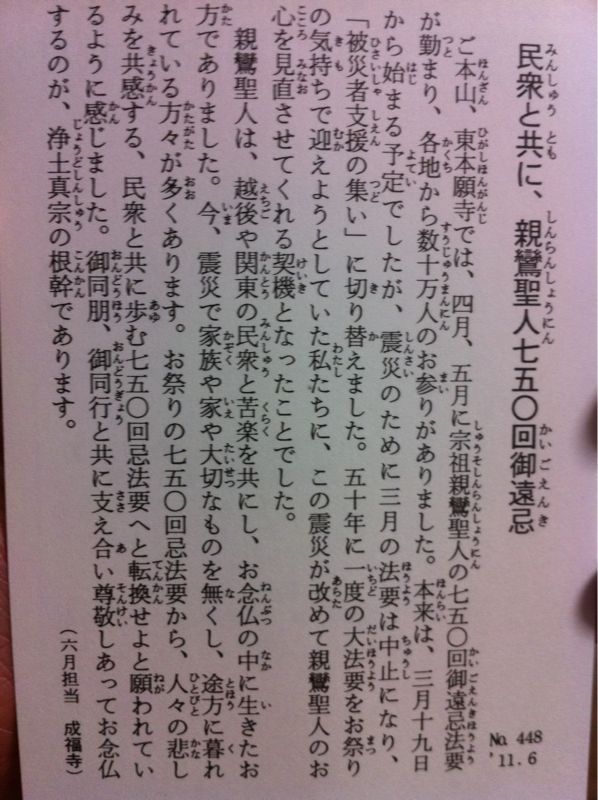 民衆と共に、親鸞聖人七五〇回御遠忌
No. 448
'11. 6
ご本山、東本願寺では、四月、五月に宗祖親鸞聖人の七五〇回御遠忌法要
が勤まり、各地から数十万人のお参りがありました。本来は、三月十九日
から始まる予定でしたが、震災のために三月の法要は中止になり、
「被災者支援の集い」に切り替えました。五十年に一度の大法要をお祭り
の気持ちで迎えようとしていた私たちに、この震災が改めて親鸞聖人のお
心を見直させてくれる契機となったことでした。
親鸞聖人は、越後や関東の民衆と苦楽を共にし、お念仏の中に生きたお
方でありました。今、震災で家族や家や大切なものを無くし、途方に暮れ
れている方々が多くあります。お祭りの七五〇回忌法要から、人々の悲し
みを共感する、民衆と共に歩む七五〇回忌法要へと転換せよと願われてい
るように感じました。御同朋、御同行と共に支え合い尊敬しあってお念仏
するのが、浄土真宗の根幹であります。
（六月担当　成福寺）